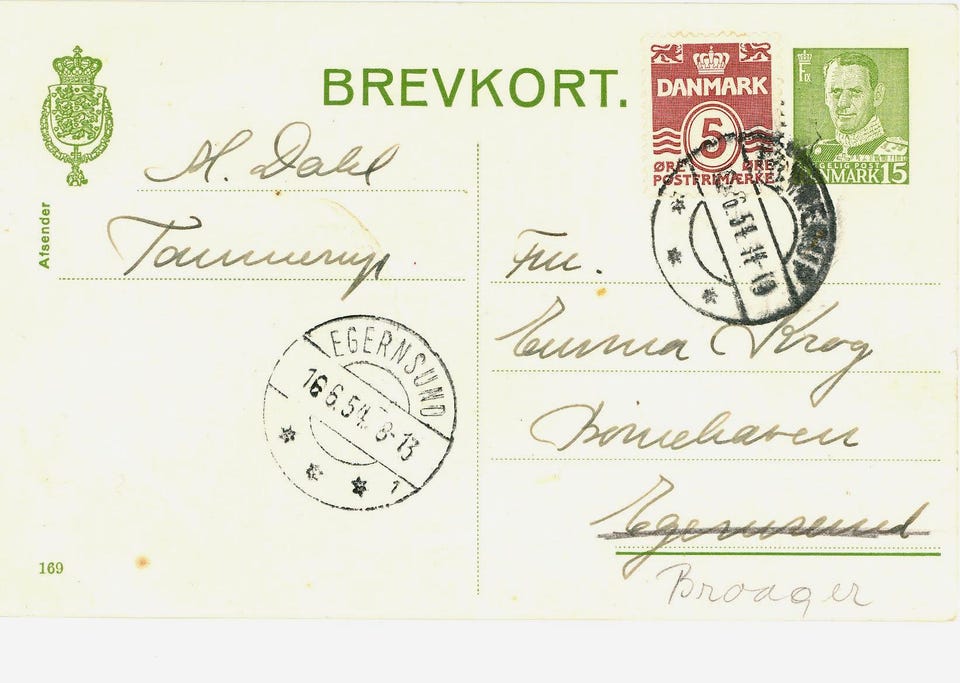 BREVKORT.
DANMARK
5
ØRE ØRE
POSTFRIMÆRKE
F IX
DANMARK 15
Afsender
M. Dahl
Tammerup
Fru.
Emma Krog
Børnehaven
Egernsund
Broager
EGERNSUND
16 6.54. 8-13
1
6.54.
169